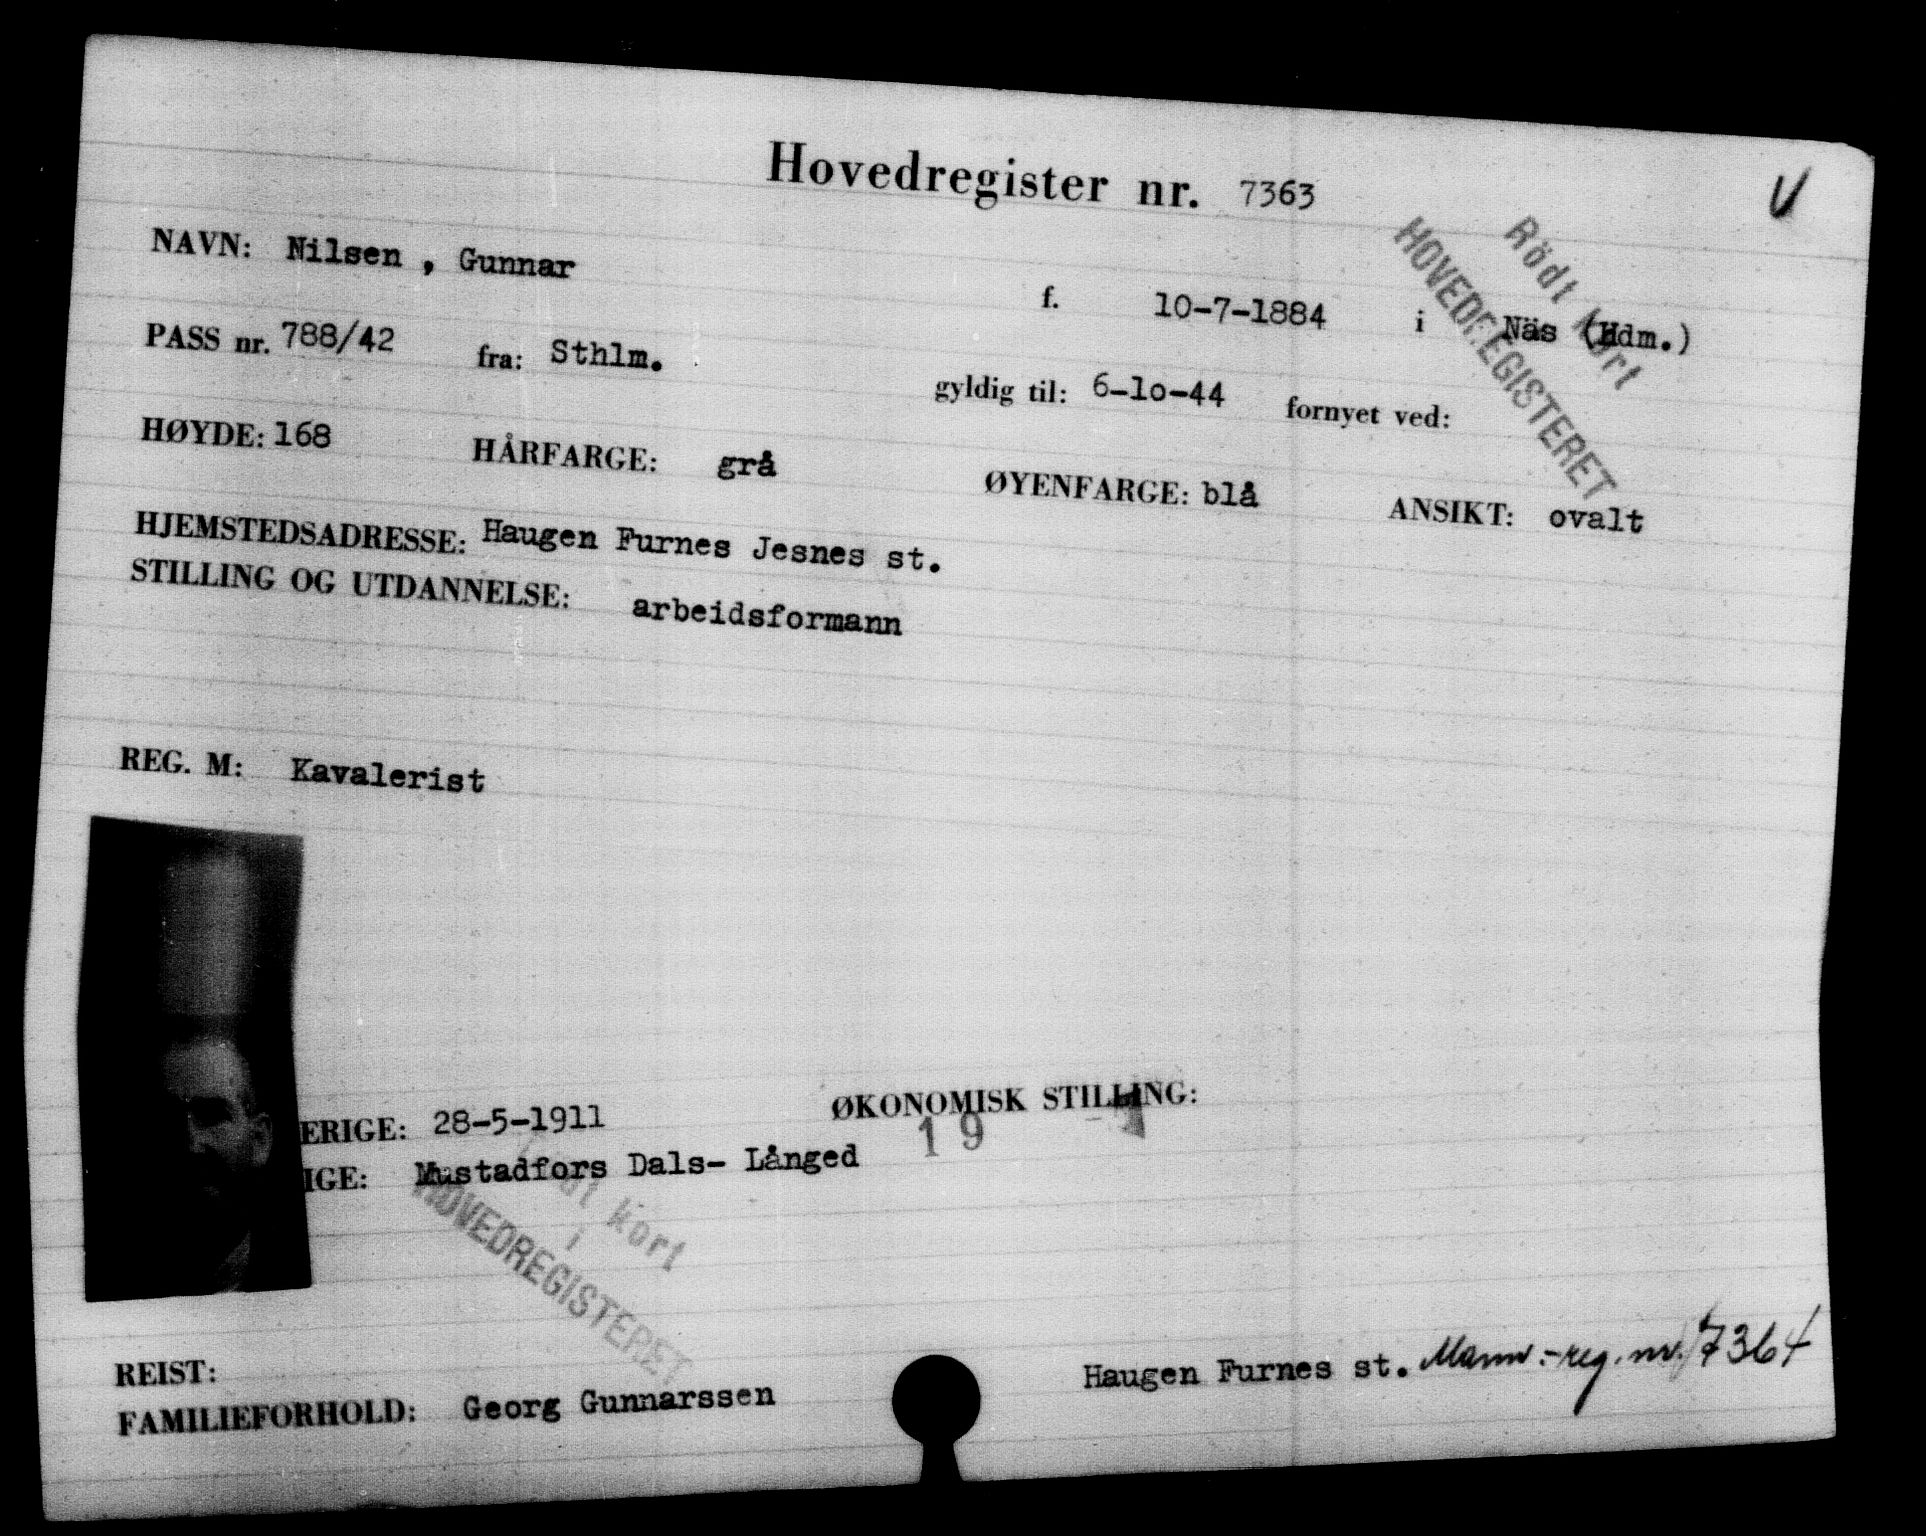 Hovedregister nr. 7363
NAVN: Nilsen , Gunnar f. 10-7-1884 i Näs (Hdm.)
PASS nr. 788/42 fra: Sthlm. gyldig til: 6-lo-44 fornyet ved:
HØYDE: 168 HÅRFARGE: grå ØYENFARGE: blå ANSIKT: ovalt
HJEMSTEDSADRESSE: Haugen Furnes Jesnes st.
STILLING OG UTDANNELSE: arbeidsformann
Rödt kort
HOVEDREGISTERET
REG. M: Kavalerist
ERIGE: 28-5-1911 ØKONOMISK STILLING:
19
IGE: Mustadfors Dals- Långed
kort
i
HOVEDREGISTERET
REIST:
FAMILIEFORHOLD: Georg Gunnarssen Haugen Furnes st. Mann.-reg. nr. 7364